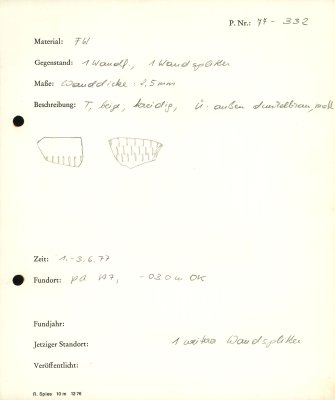 P. Nr.: 77 - 332
Material: FW
Gegenstand: 1 Wandf, 1 Wandsplitter
Maße: Wanddicke: 2,5mm
Beschreibung: T, beige, kreidig, Ü: außen dunkelbraun, matt
Zeit: 1.-3.6.77
Fundort: pa 117, -030m OK
Fundjahr:
Jetziger Standort: 1 weiterer Wandsplitter
Veröffentlicht:
R. Spies 10 m 12 76